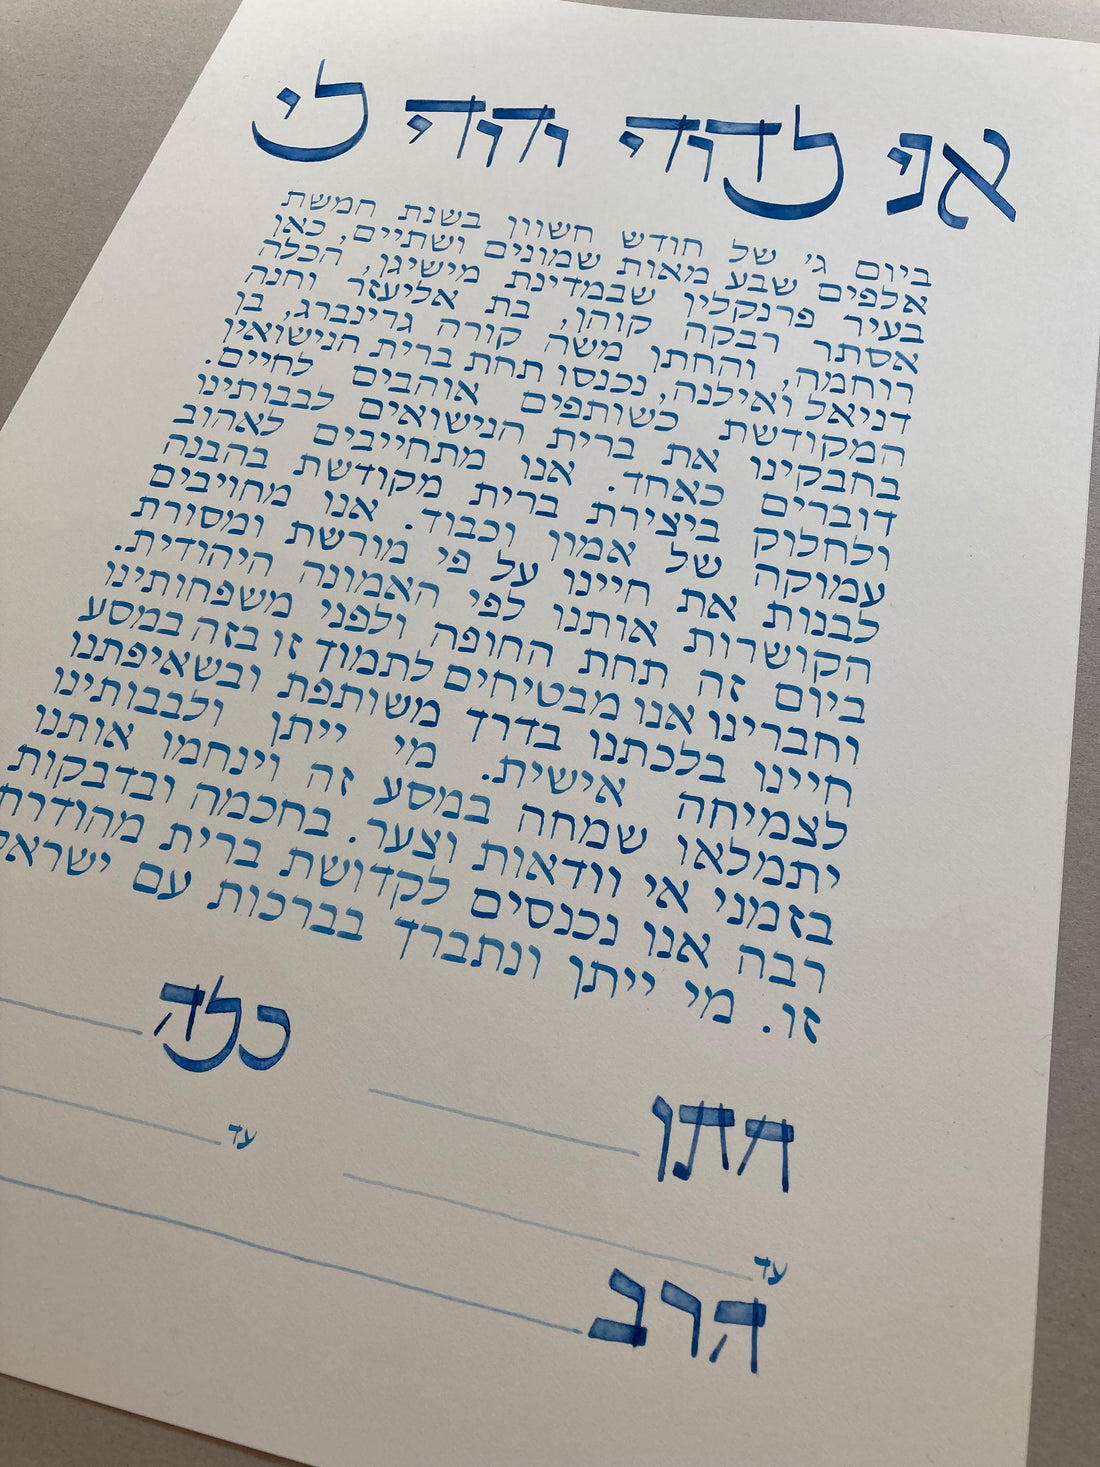 אני לדודי ודודי לי
ביום ג׳ של חודש חשוון בשנת חמשת
אלפים שבע מאות שמונים ושתיים, כאן
בעיר פרנקלין שבמדינת מישיגן, הכלה
אסתר רבקה קוהן, בת אליעזר וחנה
רוחמה, והחתן משה קורה גרינברג, בן
דניאל ואילנה, נכנסו תחת ברית הנישואין
המקודשת כשותפים אוהבים לחיים.
בחבקינו את ברית הנישואים לבבותינו
דוברים כאחד. אנו מתחייבים לאהוב
ולחלוק ביצירת ברית מקודשת בהבנה
עמוקה של אמון וכבוד. אנו מחויבים
לבנות את חיינו על פי מורשת ומסורת
הקושרות אותנו לפי האמונה היהודית.
ביום זה תחת החופה ולפני משפחותינו
וחברינו אנו מבטיחים לתמוך זו בזה במסע
חיינו בלכתנו בדרך משותפת ובשאיפתנו
לצמיחה אישית. מי ייתן ולבבותינו
יתמלאו שמחה במסע זה וינחמו אותנו
בזמני אי וודאות וצער. בחכמה ובדבקות
רבה אנו נכנסים לקדושת ברית מהודרת
זו. מי ייתן ונתברך בברכות עם ישראל
חתן כלה
עד עד
הרב